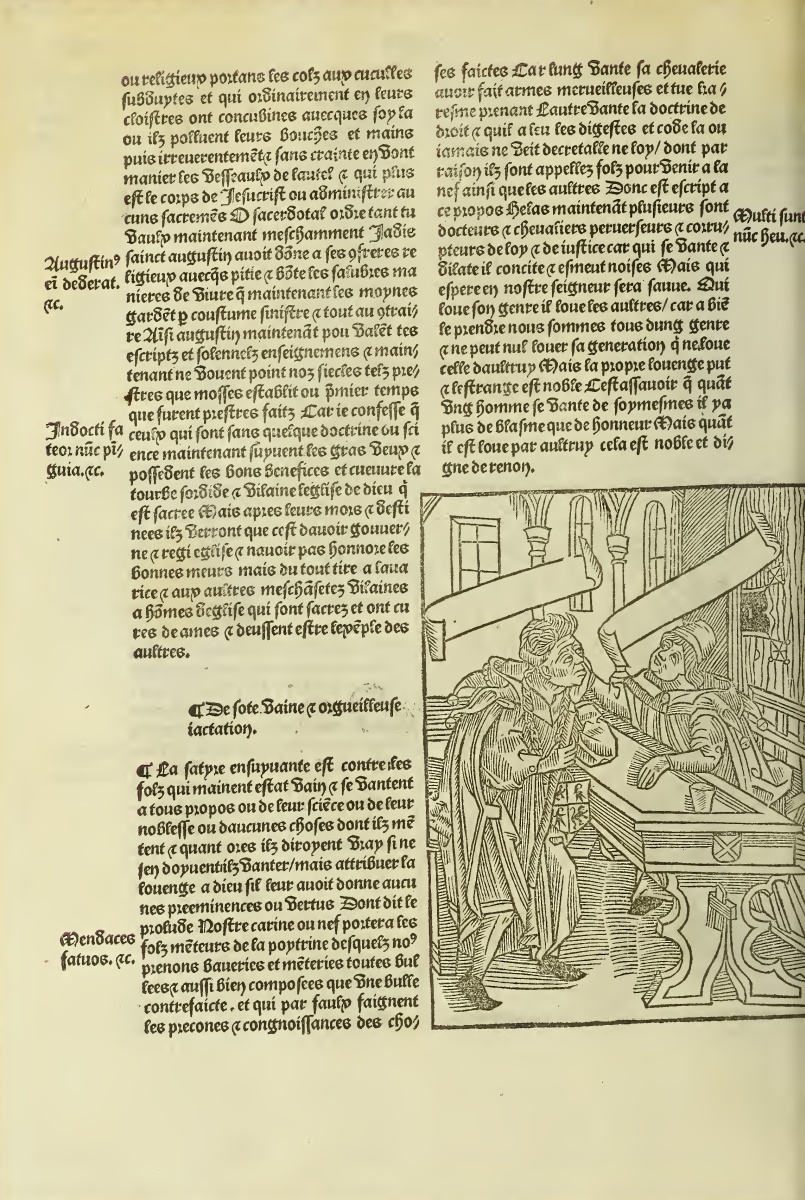 ou religieux portans les colz aux cuculles
subduptes et qui ordinairement en leurs
cloistres ont concubines auecques soy la
ou ilz polluent leurs bouches et mains
puis irreuerentemēt ⁊ sans crainte en vont
manier les vesseaulx de lautel ⁊ qui plus
est le corps de Jesucrist ou administrer au
cuns sacremēs O sacerdotal ordre tant tu
vaulx maintenant meschamment Jadis
sainct augustin auoit dōne a ses ꝯfreres re
Augustinꝰ
ei dederat.
⁊c.
ligieux auecq̄s pitie ⁊ bōte les salubres ma
nieres de viure q̄ maintenant les moynes
gardēt p coustume sinistre ⁊ tout au ꝯtrai/
re Aīsi augustin maintenāt pou valēt tes
escriptz et solennelz enseignemens ⁊ main/
tenant ne vouent point noz siecles telz pre/
stres que moyses establit ou p̄mier temps
que furent prestres faitz Car ie confesse q̄
Indocti fa
teor nūc pī/
guia.⁊c.
ceulx qui sont sans quelque doctrine ou sci
ence maintenant suyuent les gras veux ⁊
possedent les bons benefices et cueuure la
tourbe sordide ⁊ vilaine leglise de dieu q̄
est sacree Mais apres leurs mors ⁊ desti
nees ilz verront que cest dauoir gouuer/
ne ⁊ regi eglise ⁊ nauoir pas honnore les
bonnes meurs mais du tout tire a laua
rice ⁊ aux aultres meschāsetez vilaines
a hōmes deglise qui sont sacrez et ont cu
res de ames ⁊ deussent estre lexēple des
aultres.
¶ De sote vaine ⁊ orgueilleuse
iactation.
¶ La satyre ensuyuante est contre les
folz qui mainent estat vain ⁊ se vantent
a tous propos ou de leur sciēce ou de leur
noblesse ou daucunes choses dont ilz mē
tent ⁊ quant ores ilz diroyent vray si ne
sen doyuent ilz vanter/mais attribuer la
louenge a dieu sil leur auoit donne aucu
nes preeminences ou vertus Dont dit le
prolude Nostre carine ou nef portera les
Mendaces
fatuos.⁊c.
folz mēteurs de la poytrine desquelz noꝰ
prenons baueries et mēteries toutes bul
lees ⁊ aussi bien composees que vne bulle
contrefaicte. et qui par faulx faignent
les precones ⁊ congnoissances des cho/
ses faictes Car lung vante sa cheualerie
auoir fait armes merueilleuses et tue
prenant Lautre vante la doctrine de
droit ⁊ quil a leu les digestes et code la ou
iamais ne veit decretalle ne loy/ dont par
raison ilz sont appellez folz pour venir a la
nef ainsi que les aultres Donc est escript a
ce propos Helas maintenāt plusieurs sont
Multi sunt
nūc heu.⁊c.
docteurs ⁊ cheualiers peruerseurs ⁊ corru/
pteurs de loy ⁊ de iustice car qui se vante ⁊
dilate il concite ⁊ esmeut noises Mais qui
espere en nostre seigneur sera sauue. Qui
loue son genre il loue les aultres/ car a biē
le prendre nous sommes tous dung genre
⁊ ne peut nul louer sa generation q̄ ne loue
celle daultruy Mais la propre louenge put
⁊ lestrange est noble Cestassauoir q̄ quāt
vng homme se vante de soymesmes il ya
plus de blasme que de honneur Mais quāt
il est loue par aultruy cela est noble et di/
gne de renon.